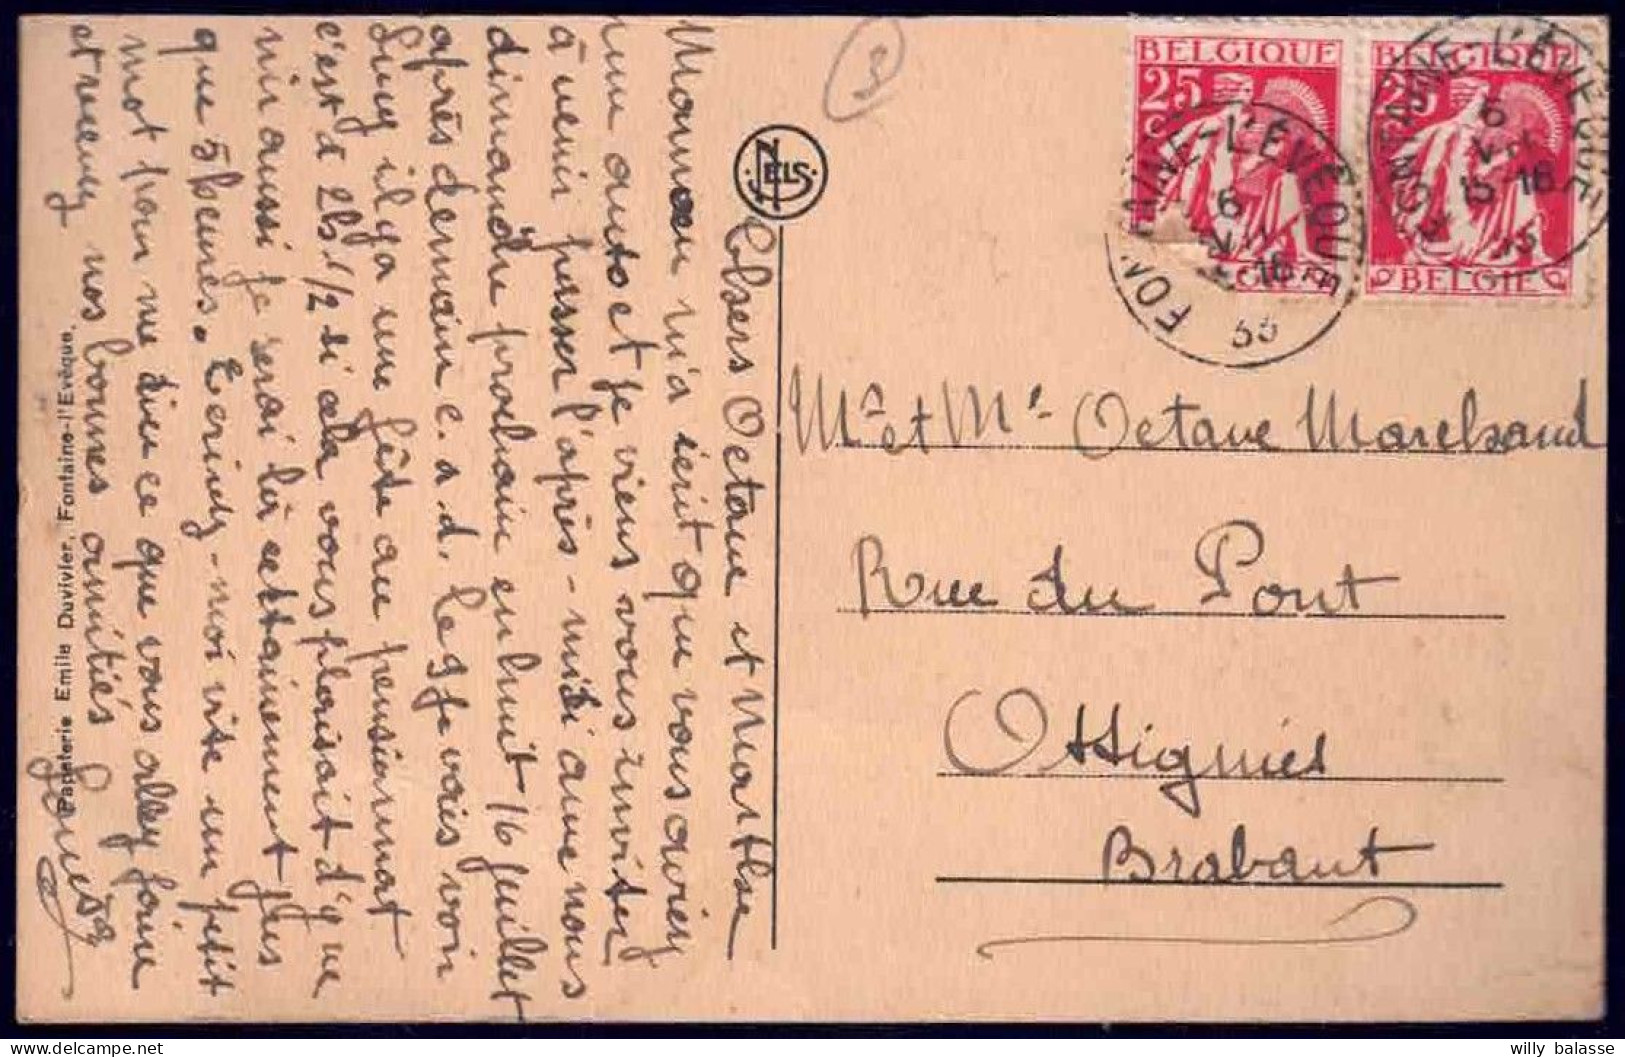 Chers Octave et Marthe
Maman m'a écrit que vous aviez
une auto et je viens vous inviter
à venir passer l'après-midi avec nous
dimanche prochain en huit 16 juillet
après demain c.a.d. le 9 je vais voir
Suzy il y a une fête au pensionnat
c'est à 2h 1/2 si cela vous plaisait d'y
que 5 heures. Ecrivez-moi vite un petit
mot pour me dire ce que vous allez faire
et recevez nos bonnes amitiés
Papeterie Emile Duvivier, Fontaine-l'Evêque.
NELS
3
BELGIQUE
25
BELGIE
FONTAINE-L'EVEQUE
6
16
33
BELGIQUE
25
BELGIE
FONTAINE-L'EVEQUE
6
16
Mr et Me Octave Marchand
Rue du Pont
Ottignies
Brabant
willy balasse